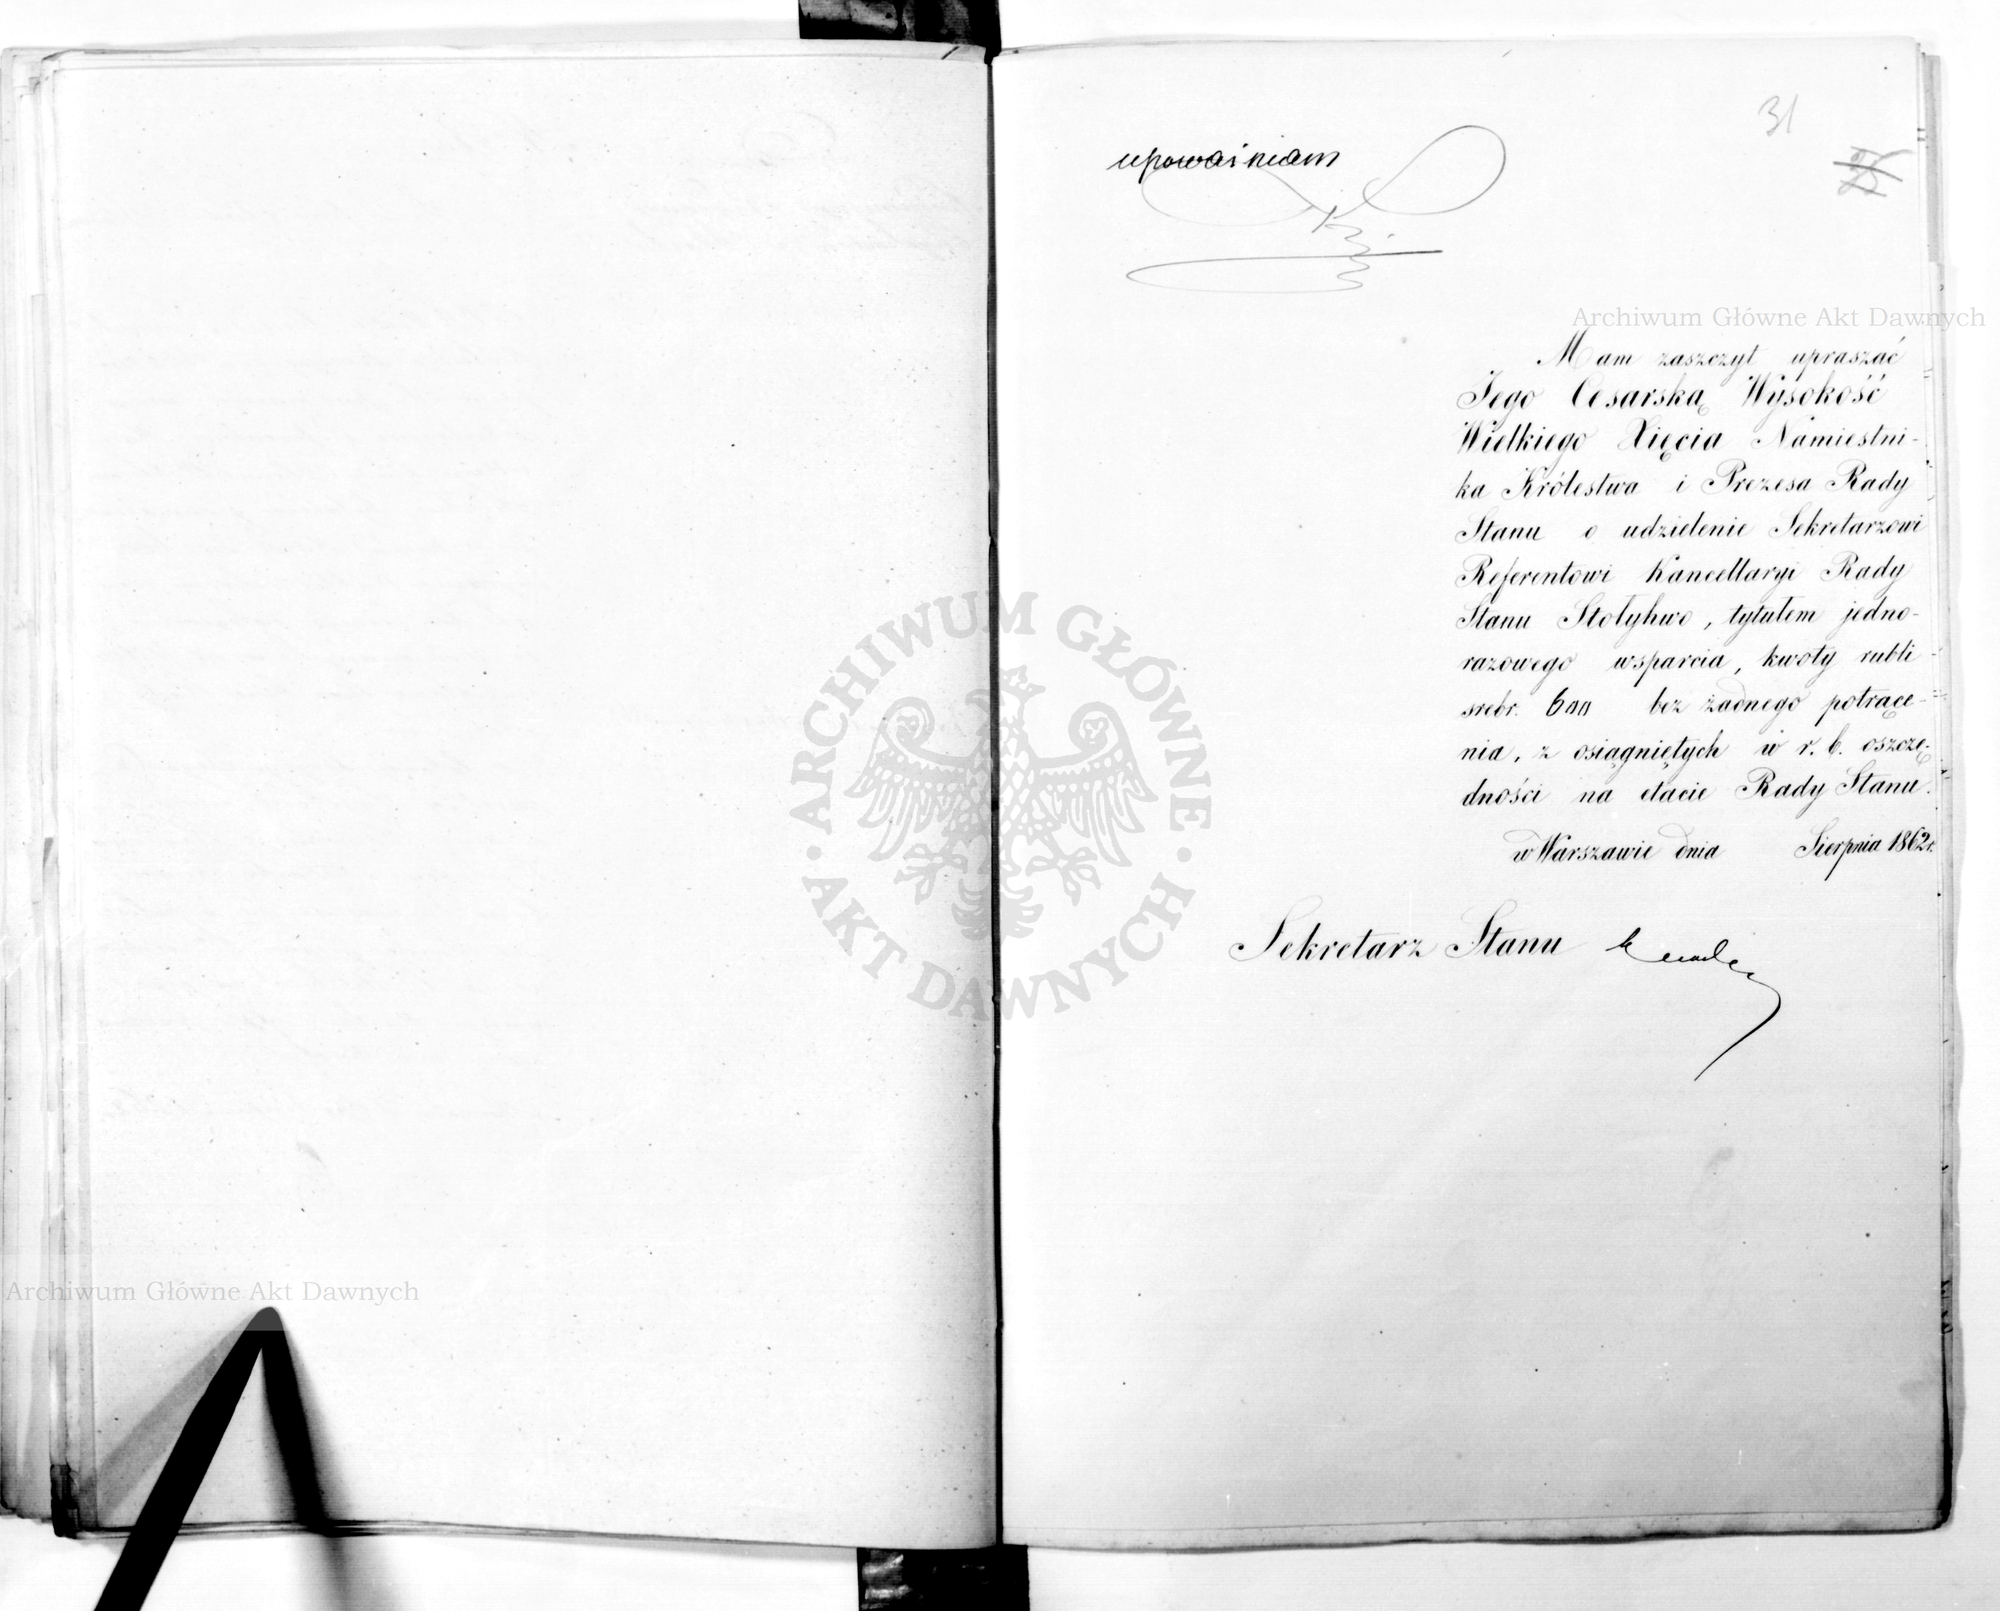 31
25
upoważniam
Mam zaszczyt upraszać
Jego Cesarską Wysokość
Wielkiego Xięcia Namiestni-
ka Królestwa i Prezesa Rady
Stanu o udzielenie Sekretarzowi
Referentowi Kancellaryi Rady
Stanu Stołyhwo, tytułem jedno-
razowego wsparcia, kwoty rubli
srebr. 600 bez żadnego potrące-
nia, z osiągniętych w r. b. oszczę-
dności na etacie Rady Stanu.
w Warszawie dnia Sierpnia 1862 r.
Sekretarz Stanu
Archiwum Główne Akt Dawnych
ARCHIWUM GŁÓWNE
AKT DAWNYCH
Archiwum Główne Akt Dawnych